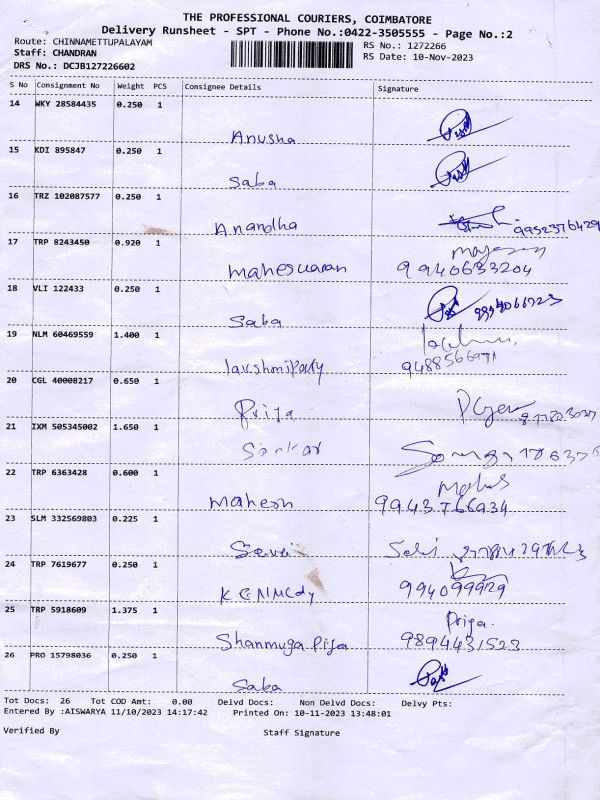 THE PROFESSIONAL COURIERS, COIMBATORE
Delivery Runsheet - SPT - Phone No.:0422-3505555 - Page No.:2
Route: CHINNAMETTUPALAYAM
RS No.: 1272266
Staff: CHANDRAN
RS Date: 10-Nov-2023
DRS No.: DCJB127226602
S No Consignment No Weight PCS Consignee Details Signature
14 WKY 28584435 0.250 1
Anusha
15 KDI 895847 0.250 1
Saba
16 TRZ 102087577 0.250 1
Anandha 9952376429
17 TRP 8243450 0.920 1
Maheswaran 9940633204
18 VLI 122433 0.250 1
Saba
19 NLM 60469559 1.400 1
9488566971
20 CGL 40008217 0.650 1
Priya
21 IXM 505345002 1.650 1
Sankar
22 TRP 6363428 0.600 1
Mahesh 9943766934
23 SLM 332569803 0.225 1
24 TRP 7619677 0.250 1
994099929
25 TRP 5918609 1.375 1
Priya.
Shanmuga Piya 9894431523
26 PRO 15798036 0.250 1
Saba
Tot Docs: 26 Tot COD Amt: 0.00 Delvd Docs: Non Delvd Docs: Delvy Pts:
Entered By :AISWARYA 11/10/2023 14:17:42 Printed On: 10-11-2023 13:48:01
Verified By Staff Signature